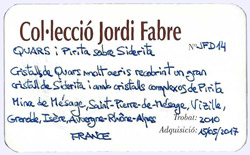 Col·lecció Jordi Fabre
QUARS i Pirita sobre Siderita Nº JFD14
Cristall de Quars molt aeris recobrint un gran
cristall de Siderita i amb cristalls complexos de Pirita
Mina de Mésage, Saint-Pierre-de-Mésage, Vizille,
Grenoble, Isère, Auvergne-Rhône-Alpes Trobat: 2010
FRANCE Adquisició: 15/05/2017